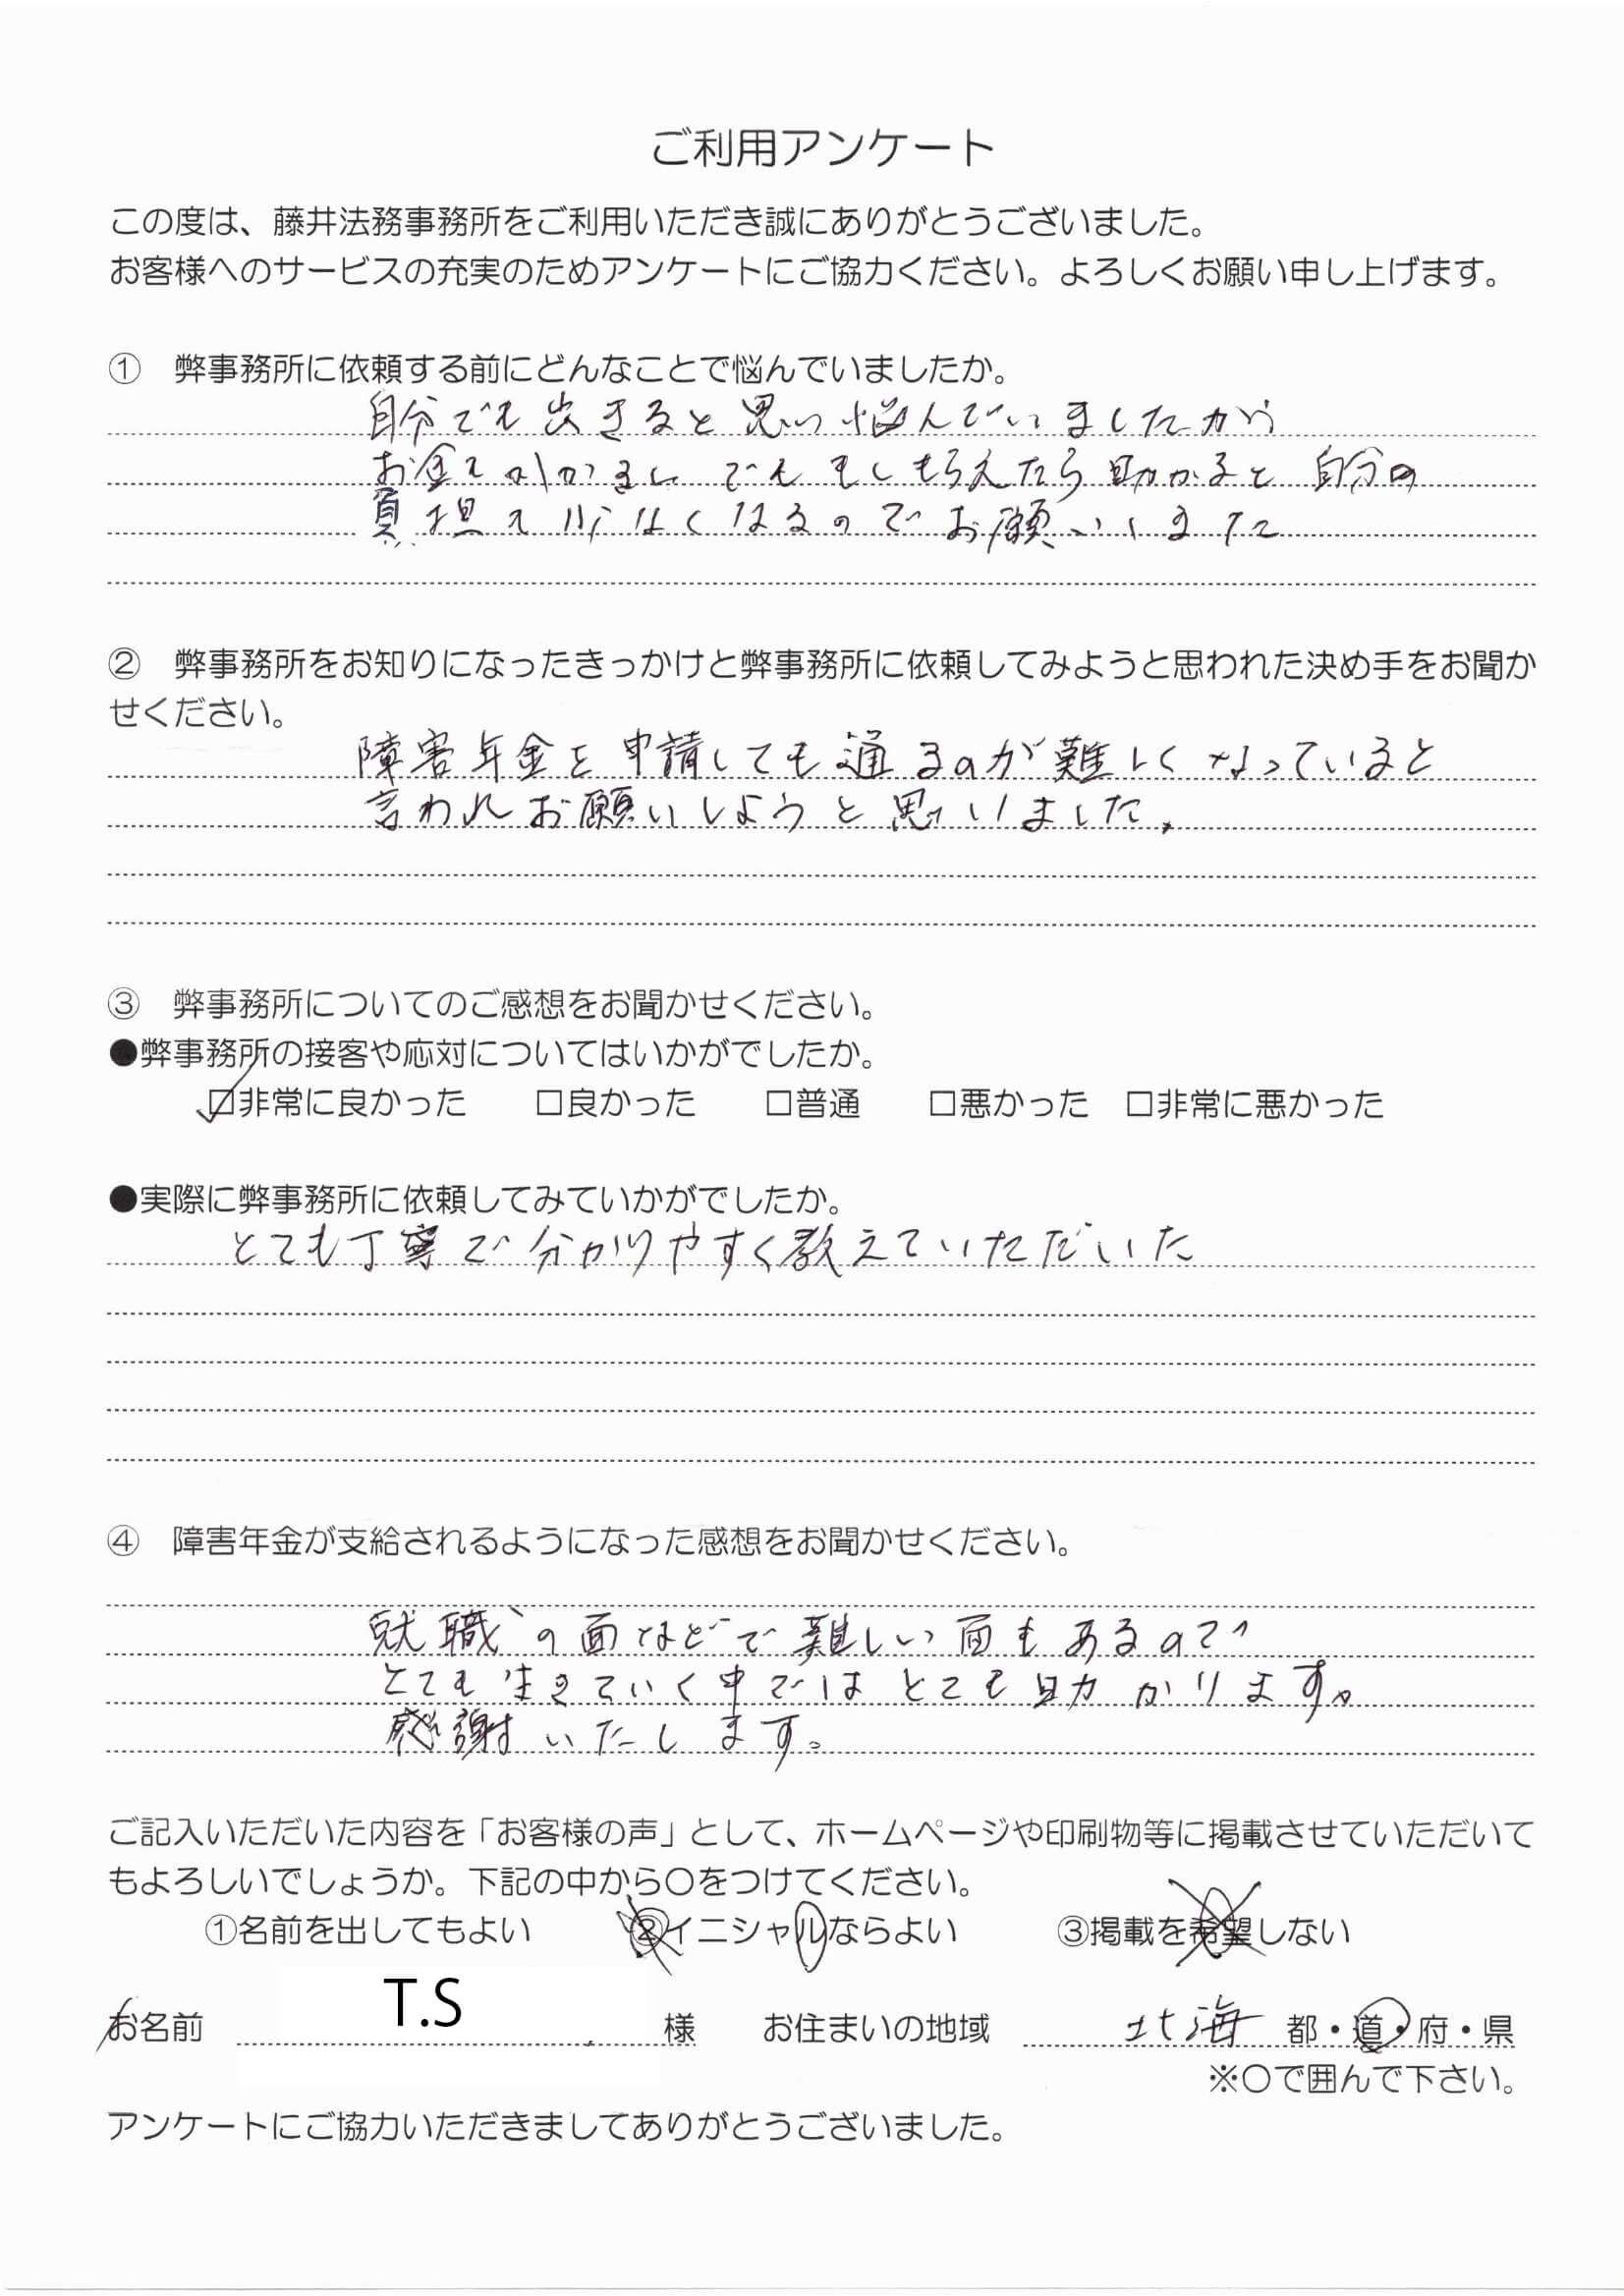 ご利用アンケート
この度は、藤井法務事務所をご利用いただき誠にありがとうございました。
お客様へのサービスの充実のためアンケートにご協力ください。よろしくお願い申し上げます。
① 弊事務所に依頼する前にどんなことで悩んでいましたか。
自分でも出きると思い悩んでいましたが
お金て かかるし でも もしもらえたら助かると自分の
負担て 少なくなるのでお願いしました
② 弊事務所をお知りになったきっかけと弊事務所に依頼してみようと思われた決め手をお聞か
せください。
障害年金を申請しても通るのが難しくなっていると
言われお願いしようと思いました。
③ 弊事務所についてのご感想をお聞かせください。
●弊事務所の接客や応対についてはいかがでしたか。
☑非常に良かった □良かった □普通 □悪かった □非常に悪かった
●実際に弊事務所に依頼してみていかがでしたか。
とても丁寧で分かりやすく教えていただいた
④ 障害年金が支給されるようになった感想をお聞かせください。
就職の面などで難しい面もあるので
とても生きていく中ではとても助かります。
感謝いたします。
ご記入いただいた内容を「お客様の声」として、ホームページや印刷物等に掲載させていただいて
もよろしいでしょうか。下記の中から〇をつけてください。
①名前を出してもよい ②イニシャルならよい ③掲載を希望しない
お名前 T.S 様 お住まいの地域 北海 都・道・府・県
※〇で囲んで下さい。
アンケートにご協力いただきましてありがとうございました。